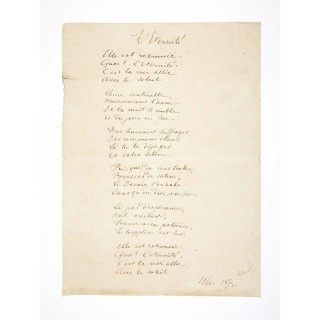 L'Eternité
Elle est retrouvée.
Quoi? L'Eternité.
C'est la mer allée
Avec le soleil
Ame sentinelle,
Murmurons l'aveu
De la nuit si nulle
Et du jour en feu.
Des humains suffrages
Des communs élans
Là tu te dégages
Et voles selon.
Puisque de vous seules,
Braises de satin,
Le Devoir s'exhale
Sans qu'on dise : enfin.
Là pas d'espérance,
Nul orietur.
Science avec patience,
Le supplice est sûr.
Elle est retrouvée.
Quoi? L'Eternité.
C'est la mer allée
Avec le soleil
Mai 1872